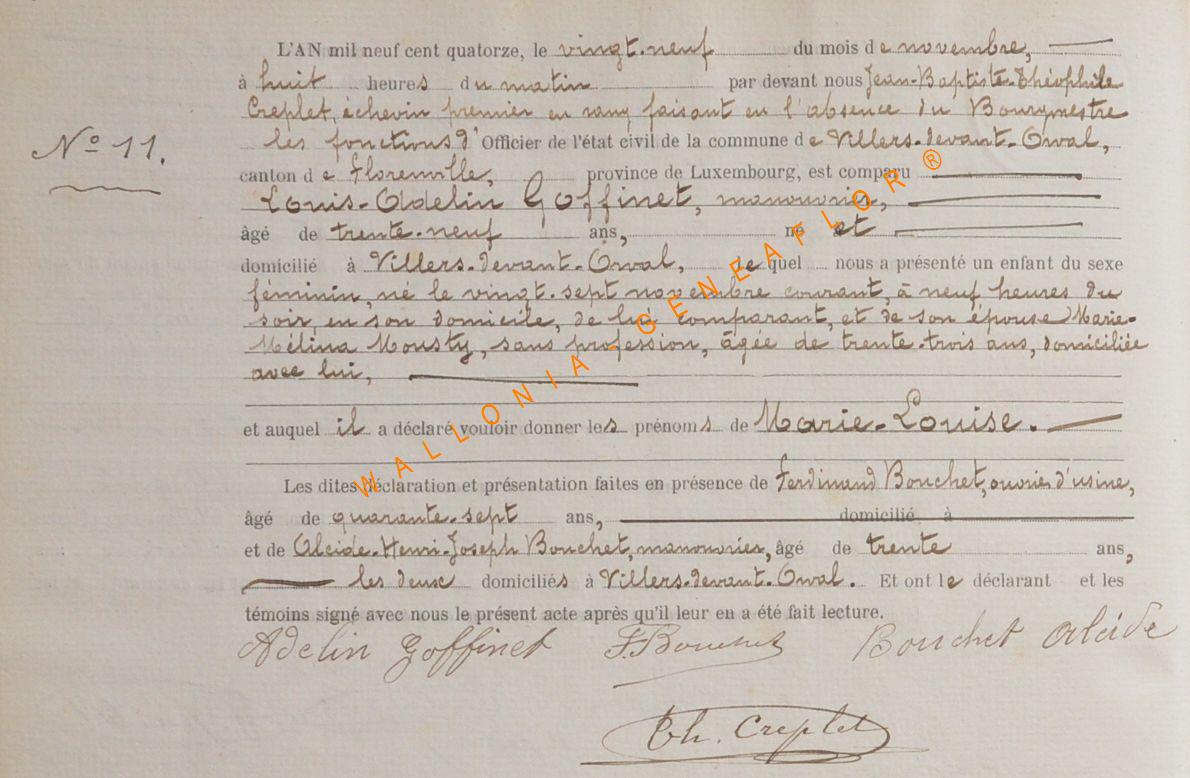 L'AN mil neuf cent quatorze, le vingt-neuf du mois de novembre,
à huit heures du matin par devant nous Jean-Baptiste-Théophile
Creplet, échevin premier en rang faisant en l'absence du Bourgmestre
les fonctions d'Officier de l'état civil de la commune de Villers-devant-Orval,
N° 11.
canton de Florenville, province de Luxembourg, est comparu
Louis-Adelin Goffinet, manouvrier,
âgé de trente-neuf ans, né et
domicilié à Villers-devant-Orval, lequel nous a présenté un enfant du sexe
féminin, né le vingt-sept novembre courant, à neuf heures du
soir, en son domicile, de lui comparant, et de son épouse Marie-
Mélina Mousty, sans profession, âgée de trente-trois ans, domiciliée
avec lui,
et auquel il a déclaré vouloir donner les prénoms de Marie-Louise.
Les dites déclaration et présentation faites en présence de Ferdinand Bouchet, ouvrier d'usine,
âgé de quarante-sept ans, domicilié à
et de Alcide-Henri-Joseph Bouchet, manouvrier, âgé de trente ans,
les deux domiciliés à Villers-devant-Orval. Et ont le déclarant et les
témoins signé avec nous le présent acte après qu'il leur en a été fait lecture.
Adelin Goffinet F. Bouchet Bouchet Alcide
Th. Creplet
WALLONIA - GENEAFLOR®